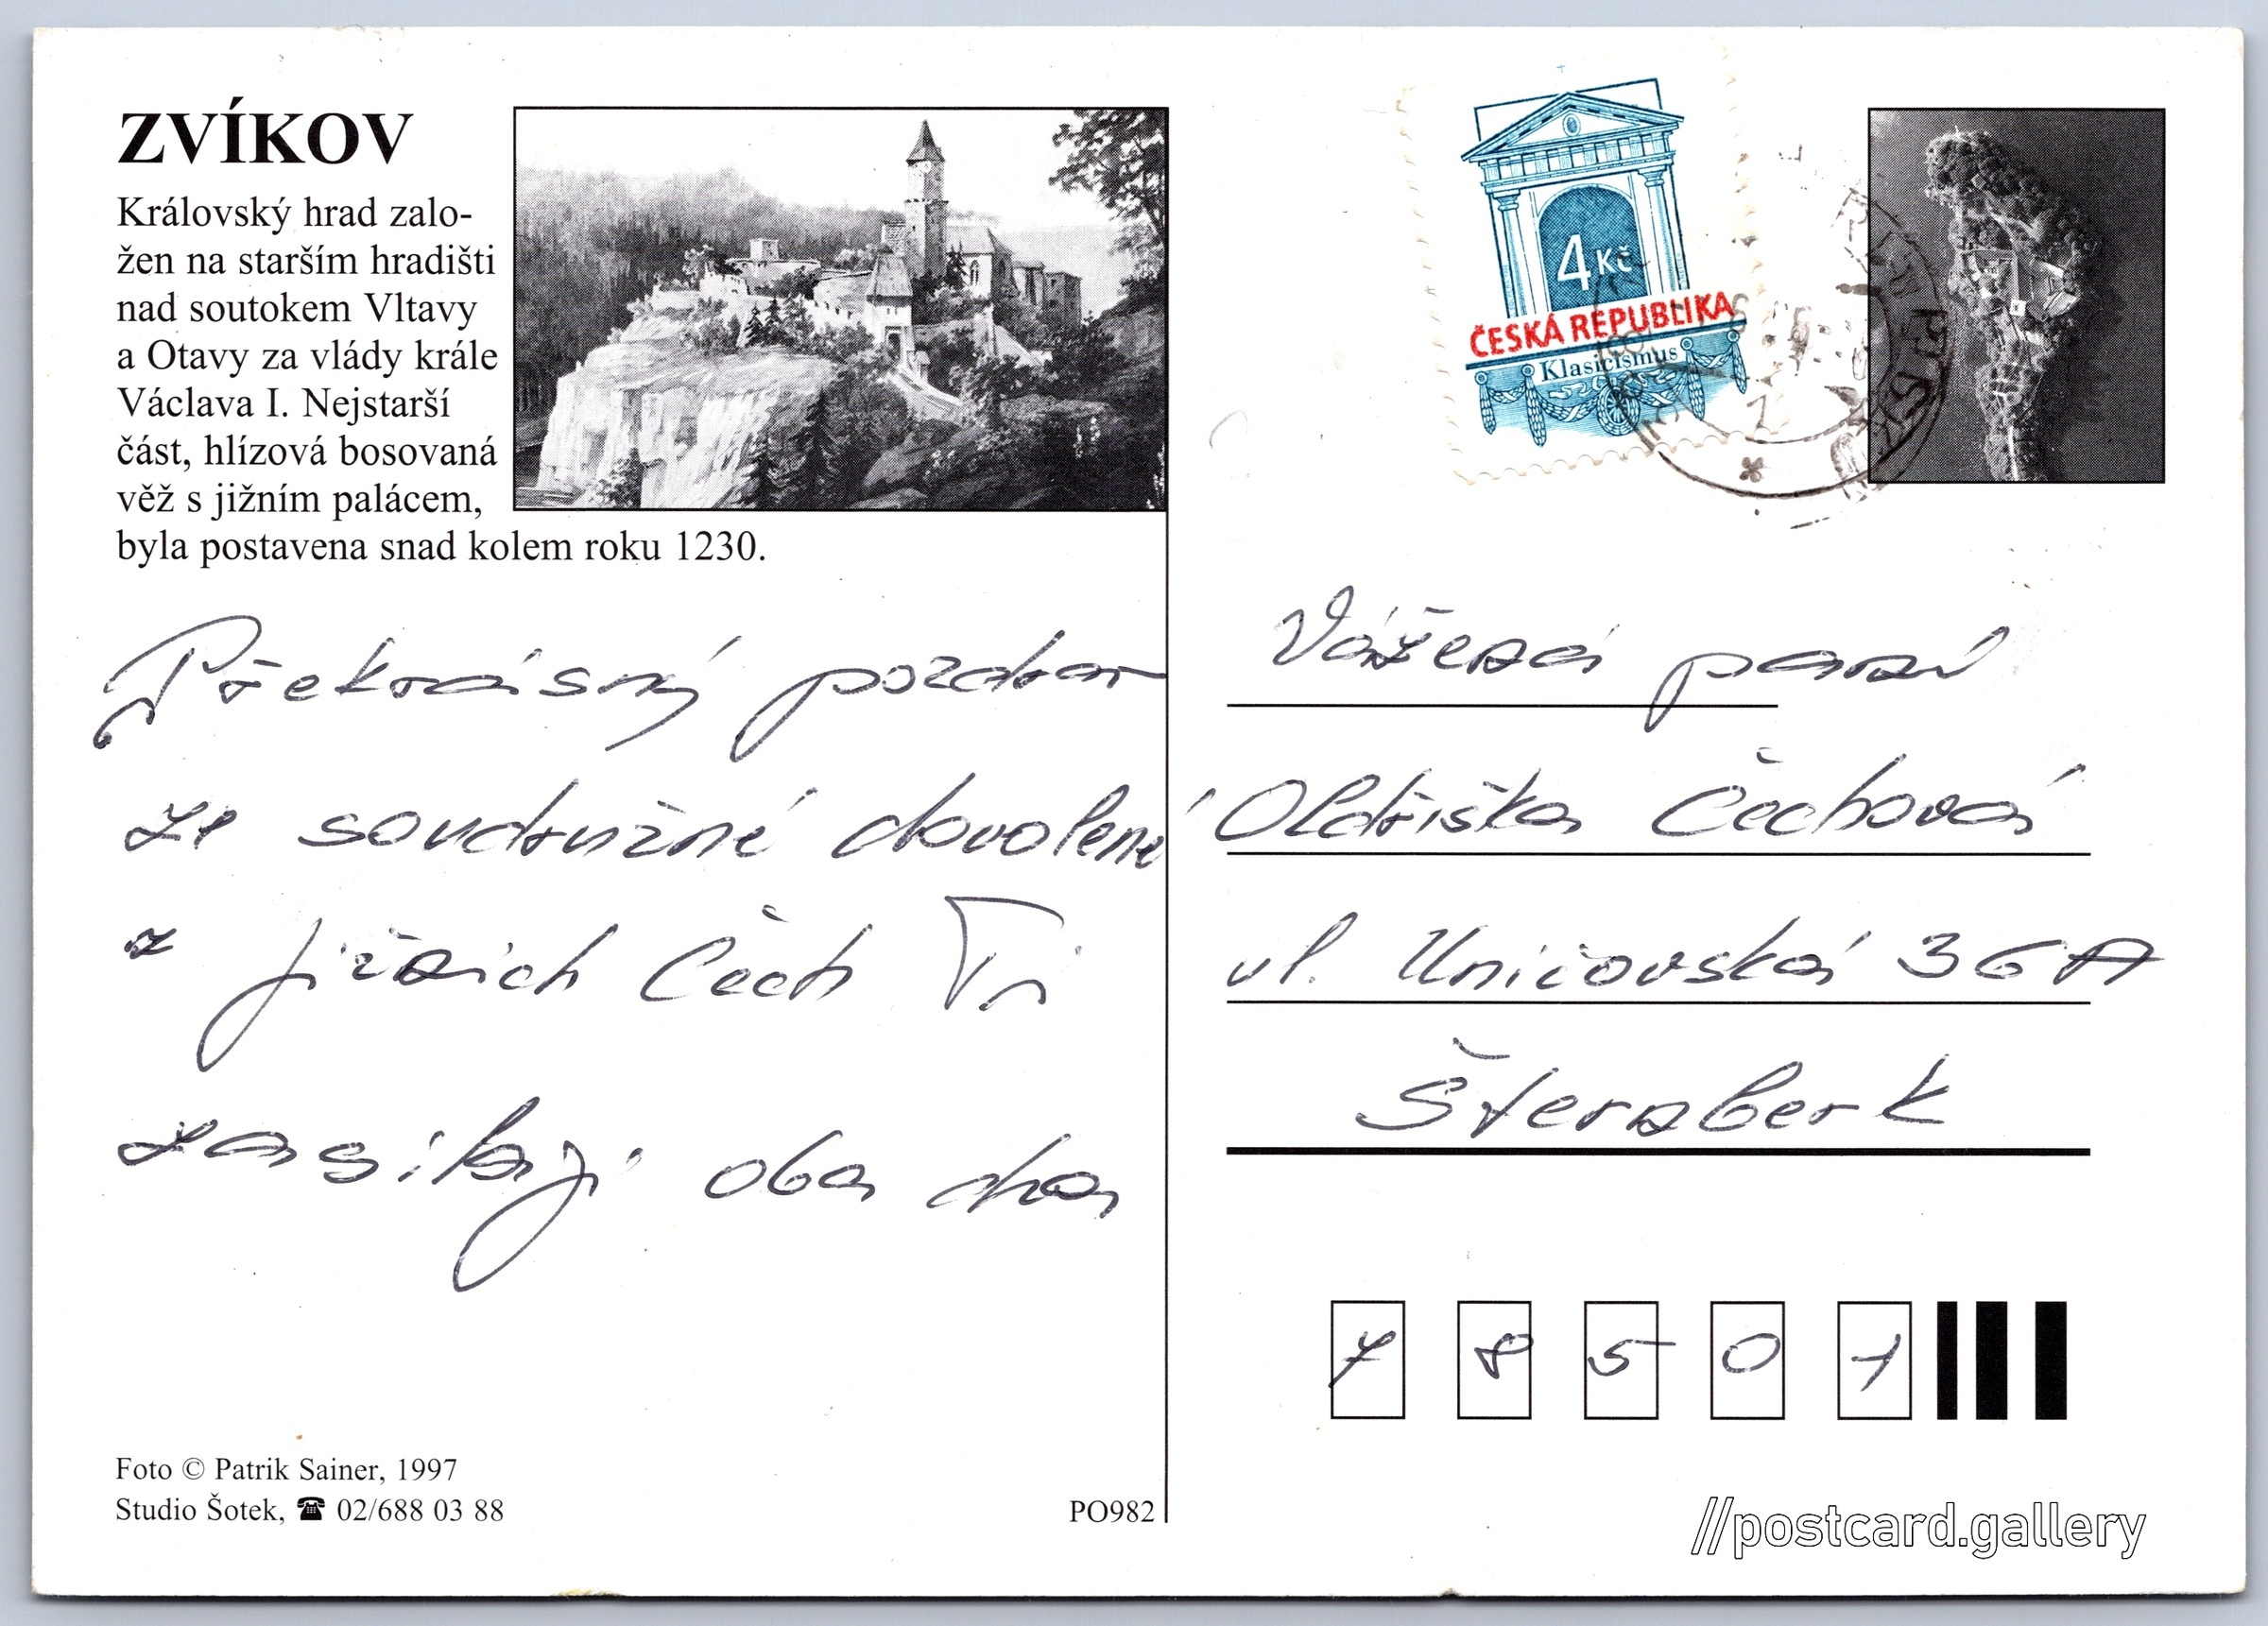 ZVÍKOV
Královský hrad zalo-
žen na starším hradišti
nad soutokem Vltavy
a Otavy za vlády krále
Václava I. Nejstarší
část, hlízová bosovaná
věž s jižním palácem,
byla postavena snad kolem roku 1230.
Překrásný pozdrav
ze soudružné dovolené
z jižních Čech Ti
zasílají oba dva
Foto © Patrik Sainer, 1997
Studio Šotek, ☎ 02/688 03 88
PO982
4 Kč
ČESKÁ REPUBLIKA
Klasicismus
Vážená paní
Oldřiška Čechová
ul. Uničovská 36A
Šternberk
7 8 5 0 1
//postcard.gallery